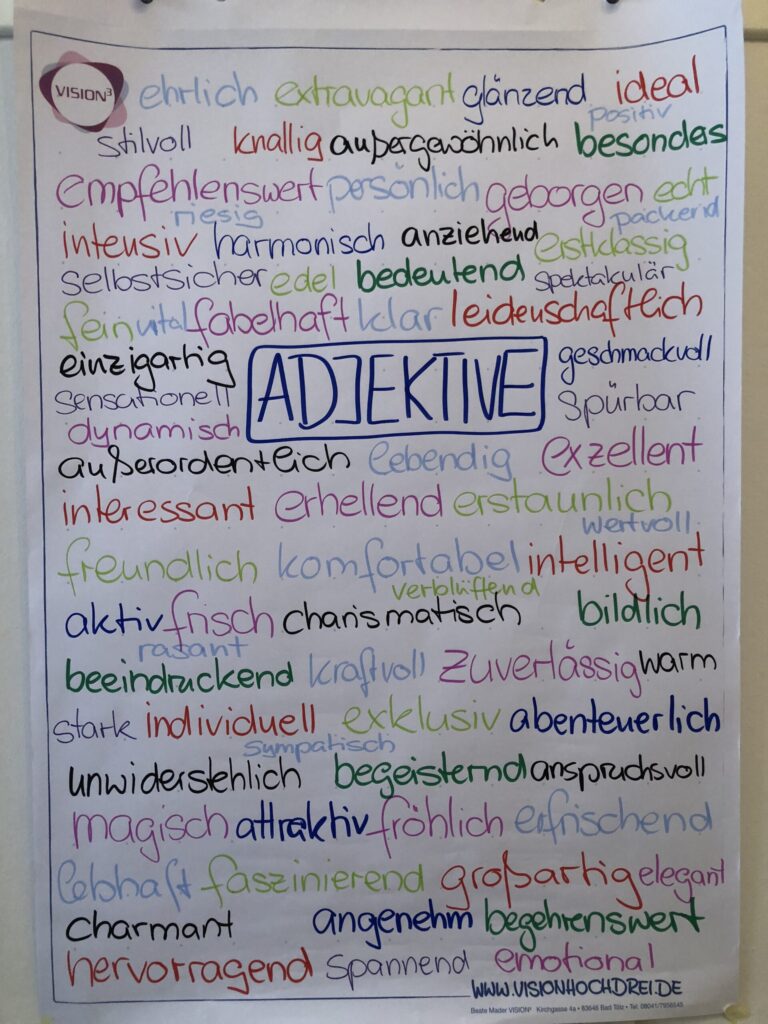 VISION³ ehrlich extravagant glänzend ideal
positiv
stilvoll knallig außergewöhnlich besonders
empfehlenswert persönlich geborgen echt
riesig packend
intensiv harmonisch anziehend erstklassig
selbstsicher edel bedeutend spektakulär
fein vital fabelhaft klar leidenschaftlich
einzigartig
sensationell
dynamisch
ADJEKTIVE
geschmackvoll
spürbar
außerordentlich lebendig exzellent
interessant erhellend erstaunlich
wertvoll
freundlich komfortabel intelligent
verblüffend
aktiv frisch charismatisch bildlich
rasant
beeindruckend kraftvoll zuverlässig warm
stark individuell exklusiv abenteuerlich
sympatisch
unwiderstehlich begeisternd anspruchsvoll
magisch attraktiv fröhlich erfrischend
lebhaft faszinierend großartig elegant
charmant angenehm begehrenswert
hervorragend spannend emotional
WWW.VISIONHOCHDREI.DE
Beate Mader VISION³ Kirchgasse 4a • 83646 Bad Tölz • Tel: 08041/7956545